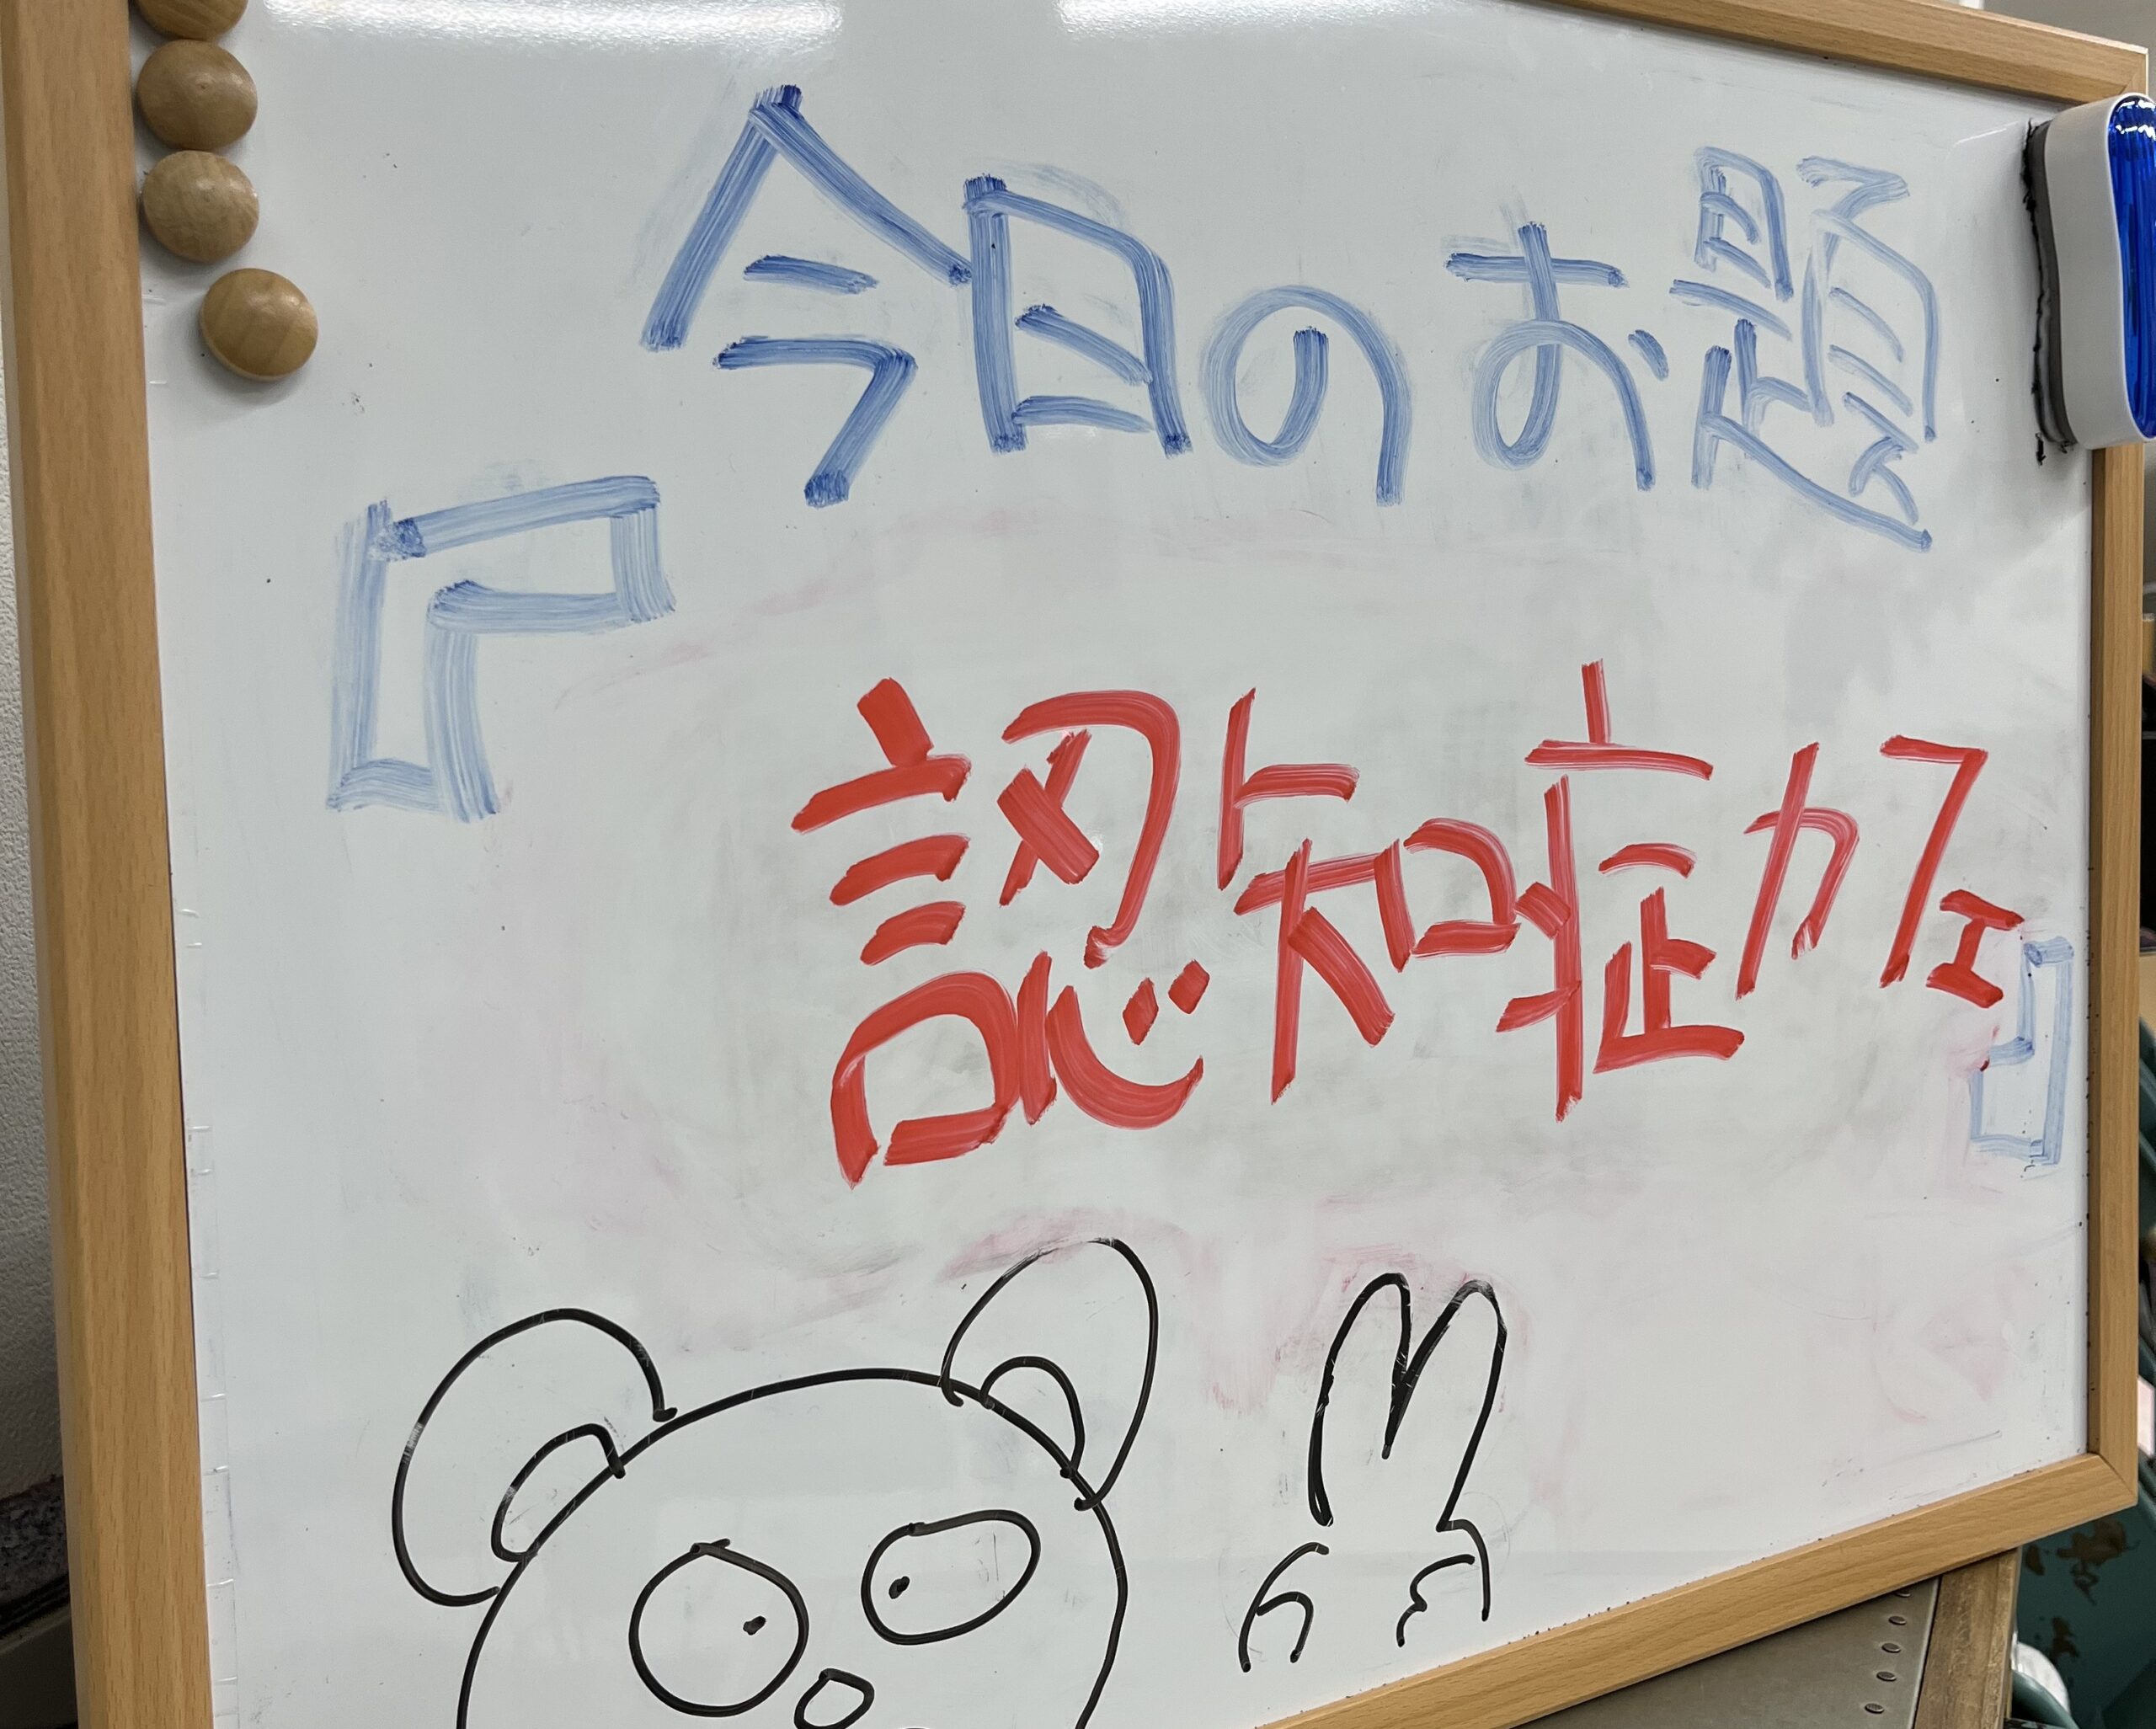 今日のお題
『認知症カフェ』